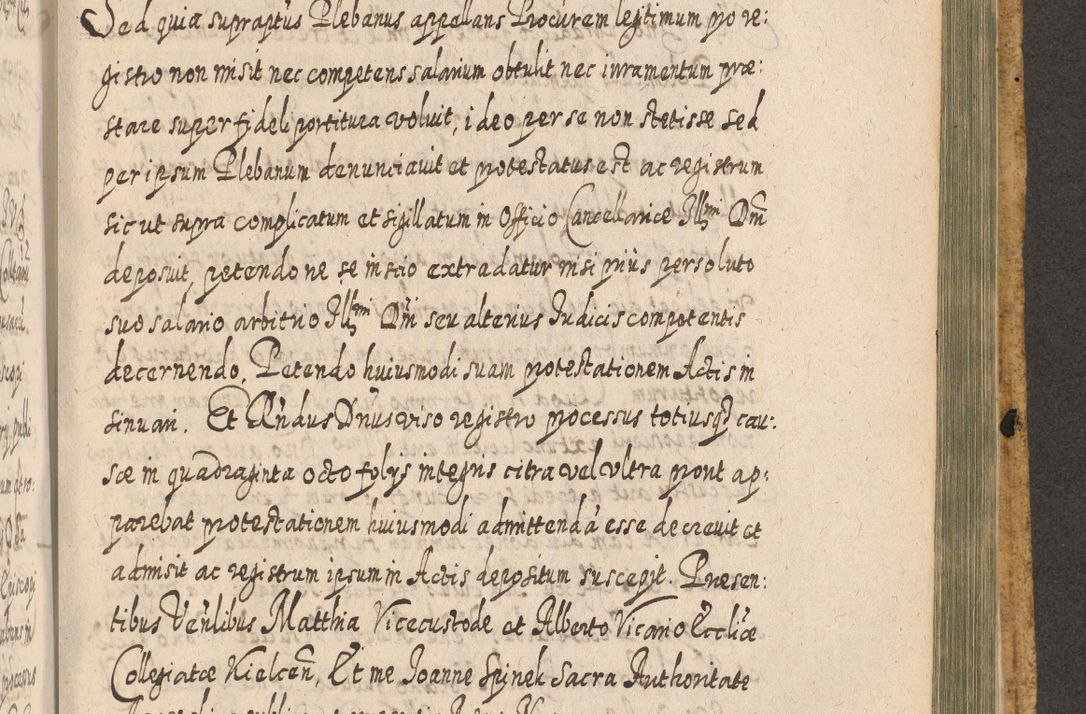 Sed quia supraptus Plebanus appellans Procurem legitimum pro re:
gistro non misit nec competens salarium obtulit nec iuramentum præ:
stare super fideli portitura voluit, ideo per se non stetisse sed
per ipsum Plebanum denunciavit et protestatus est ac registrum
sic ut supra complicatum et sigillatum in Officio Cancellariæ Illmi Dni
deposuit, petendo ne se inscio extradatur nisi prius persoluto
suo salario arbitrio Illmi Dni seu alterius Iudicis competentis
decernendo. Petendo huiusmodi suam protestationem Actis in
sinuari. Et Rndus Dnus viso registro processus totiusq cau:
sæ in quadraginta octo folys integris citra vel vltra prout ap:
parebat protestationem huiusmodi admittendá esse decrevit et
admisit ac registrum ipsum in Actis depositum suscepit. Præsen:
tibus Venlibus Matthia Vicecustode et Alberto Vicario Ecclæ
Collegiatæ Kielcen, Et me Ioanne Spinek Sacra Authoritate